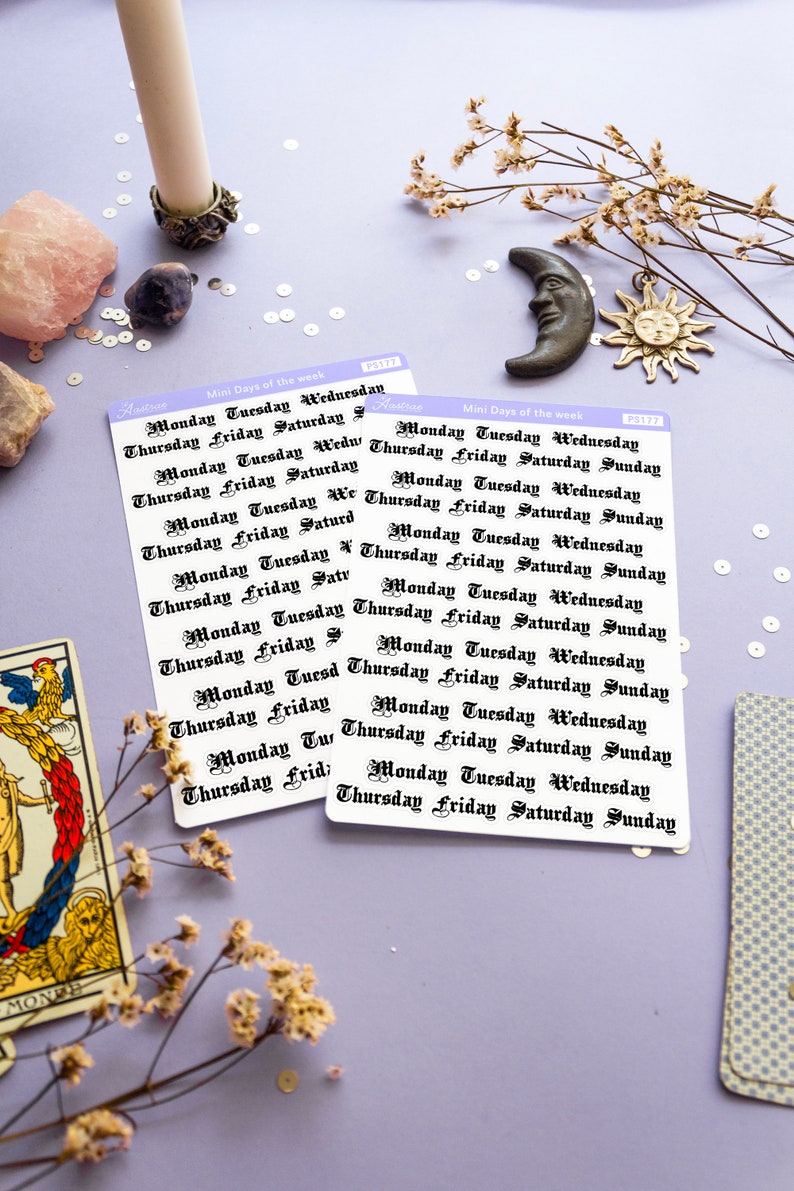 Aastrae Mini Days of the week PS177
Monday Tuesday Wednesday
Thursday Friday Saturday S
Monday Tuesday Wedn
Thursday Friday Saturday
Monday Tuesday We
Thursday Friday Saturd
Monday Tuesday W
Thursday Friday Satu
Monday Tuesday
Thursday Friday S
Monday Tuesd
Thursday Friday
Monday Tu
Thursday Frid
Aastrae Mini Days of the week PS177
Monday Tuesday Wednesday
Thursday Friday Saturday Sunday
Monday Tuesday Wednesday
Thursday Friday Saturday Sunday
Monday Tuesday Wednesday
Thursday Friday Saturday Sunday
Monday Tuesday Wednesday
Thursday Friday Saturday Sunday
Monday Tuesday Wednesday
Thursday Friday Saturday Sunday
Monday Tuesday Wednesday
Thursday Friday Saturday Sunday
Monday Tuesday Wednesday
Thursday Friday Saturday Sunday
MONDE